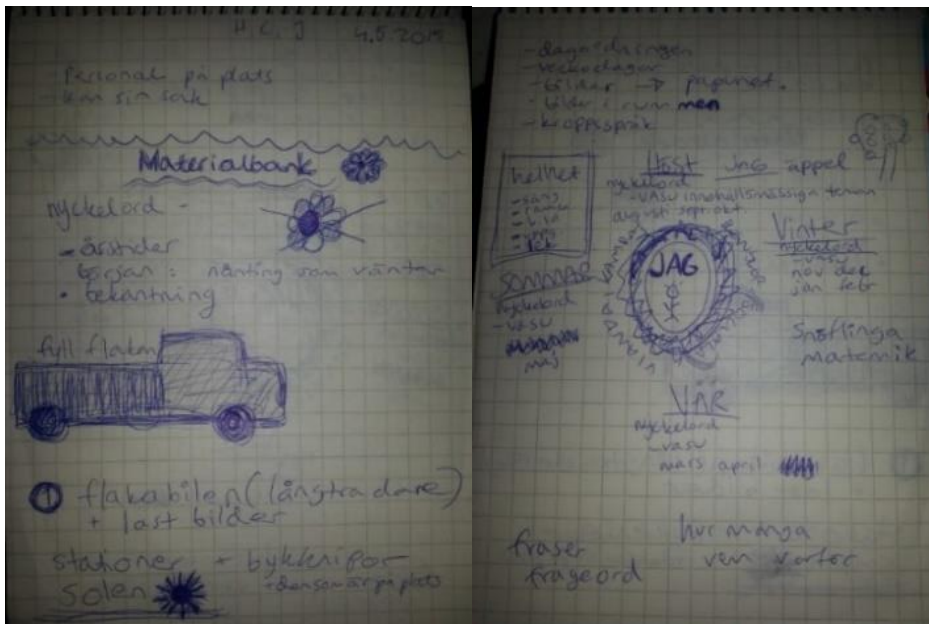 H, C, J 4.5.2015
- Personal på plats
- km sin sak
Materialbank
nyckelord -
- årstider
början : nånting som väntar
• bekantning
fyll flaken
1 flakabilen (långtradare)
+ last bilder
stationer +
+ den som är på plats
solen
- dagordningen
- veckodagar
- bilder → pappret.
- bilder i rummen
- kroppsspråk
helhet
- sång
- ramsa
- visa
- lek
Höst JAG äppel
nyckelord
- VASU innehållsmässiga teman
augusti sept okt.
Vinter
nyckelord
- vasu
nov dec
jan febr
SOMMAR
nyckelord
- vasu
maj
JAG
Snöflinga
matematik
VÅR
nyckelord
- vasu
mars april
fraser
frågeord
hur många
vem varför